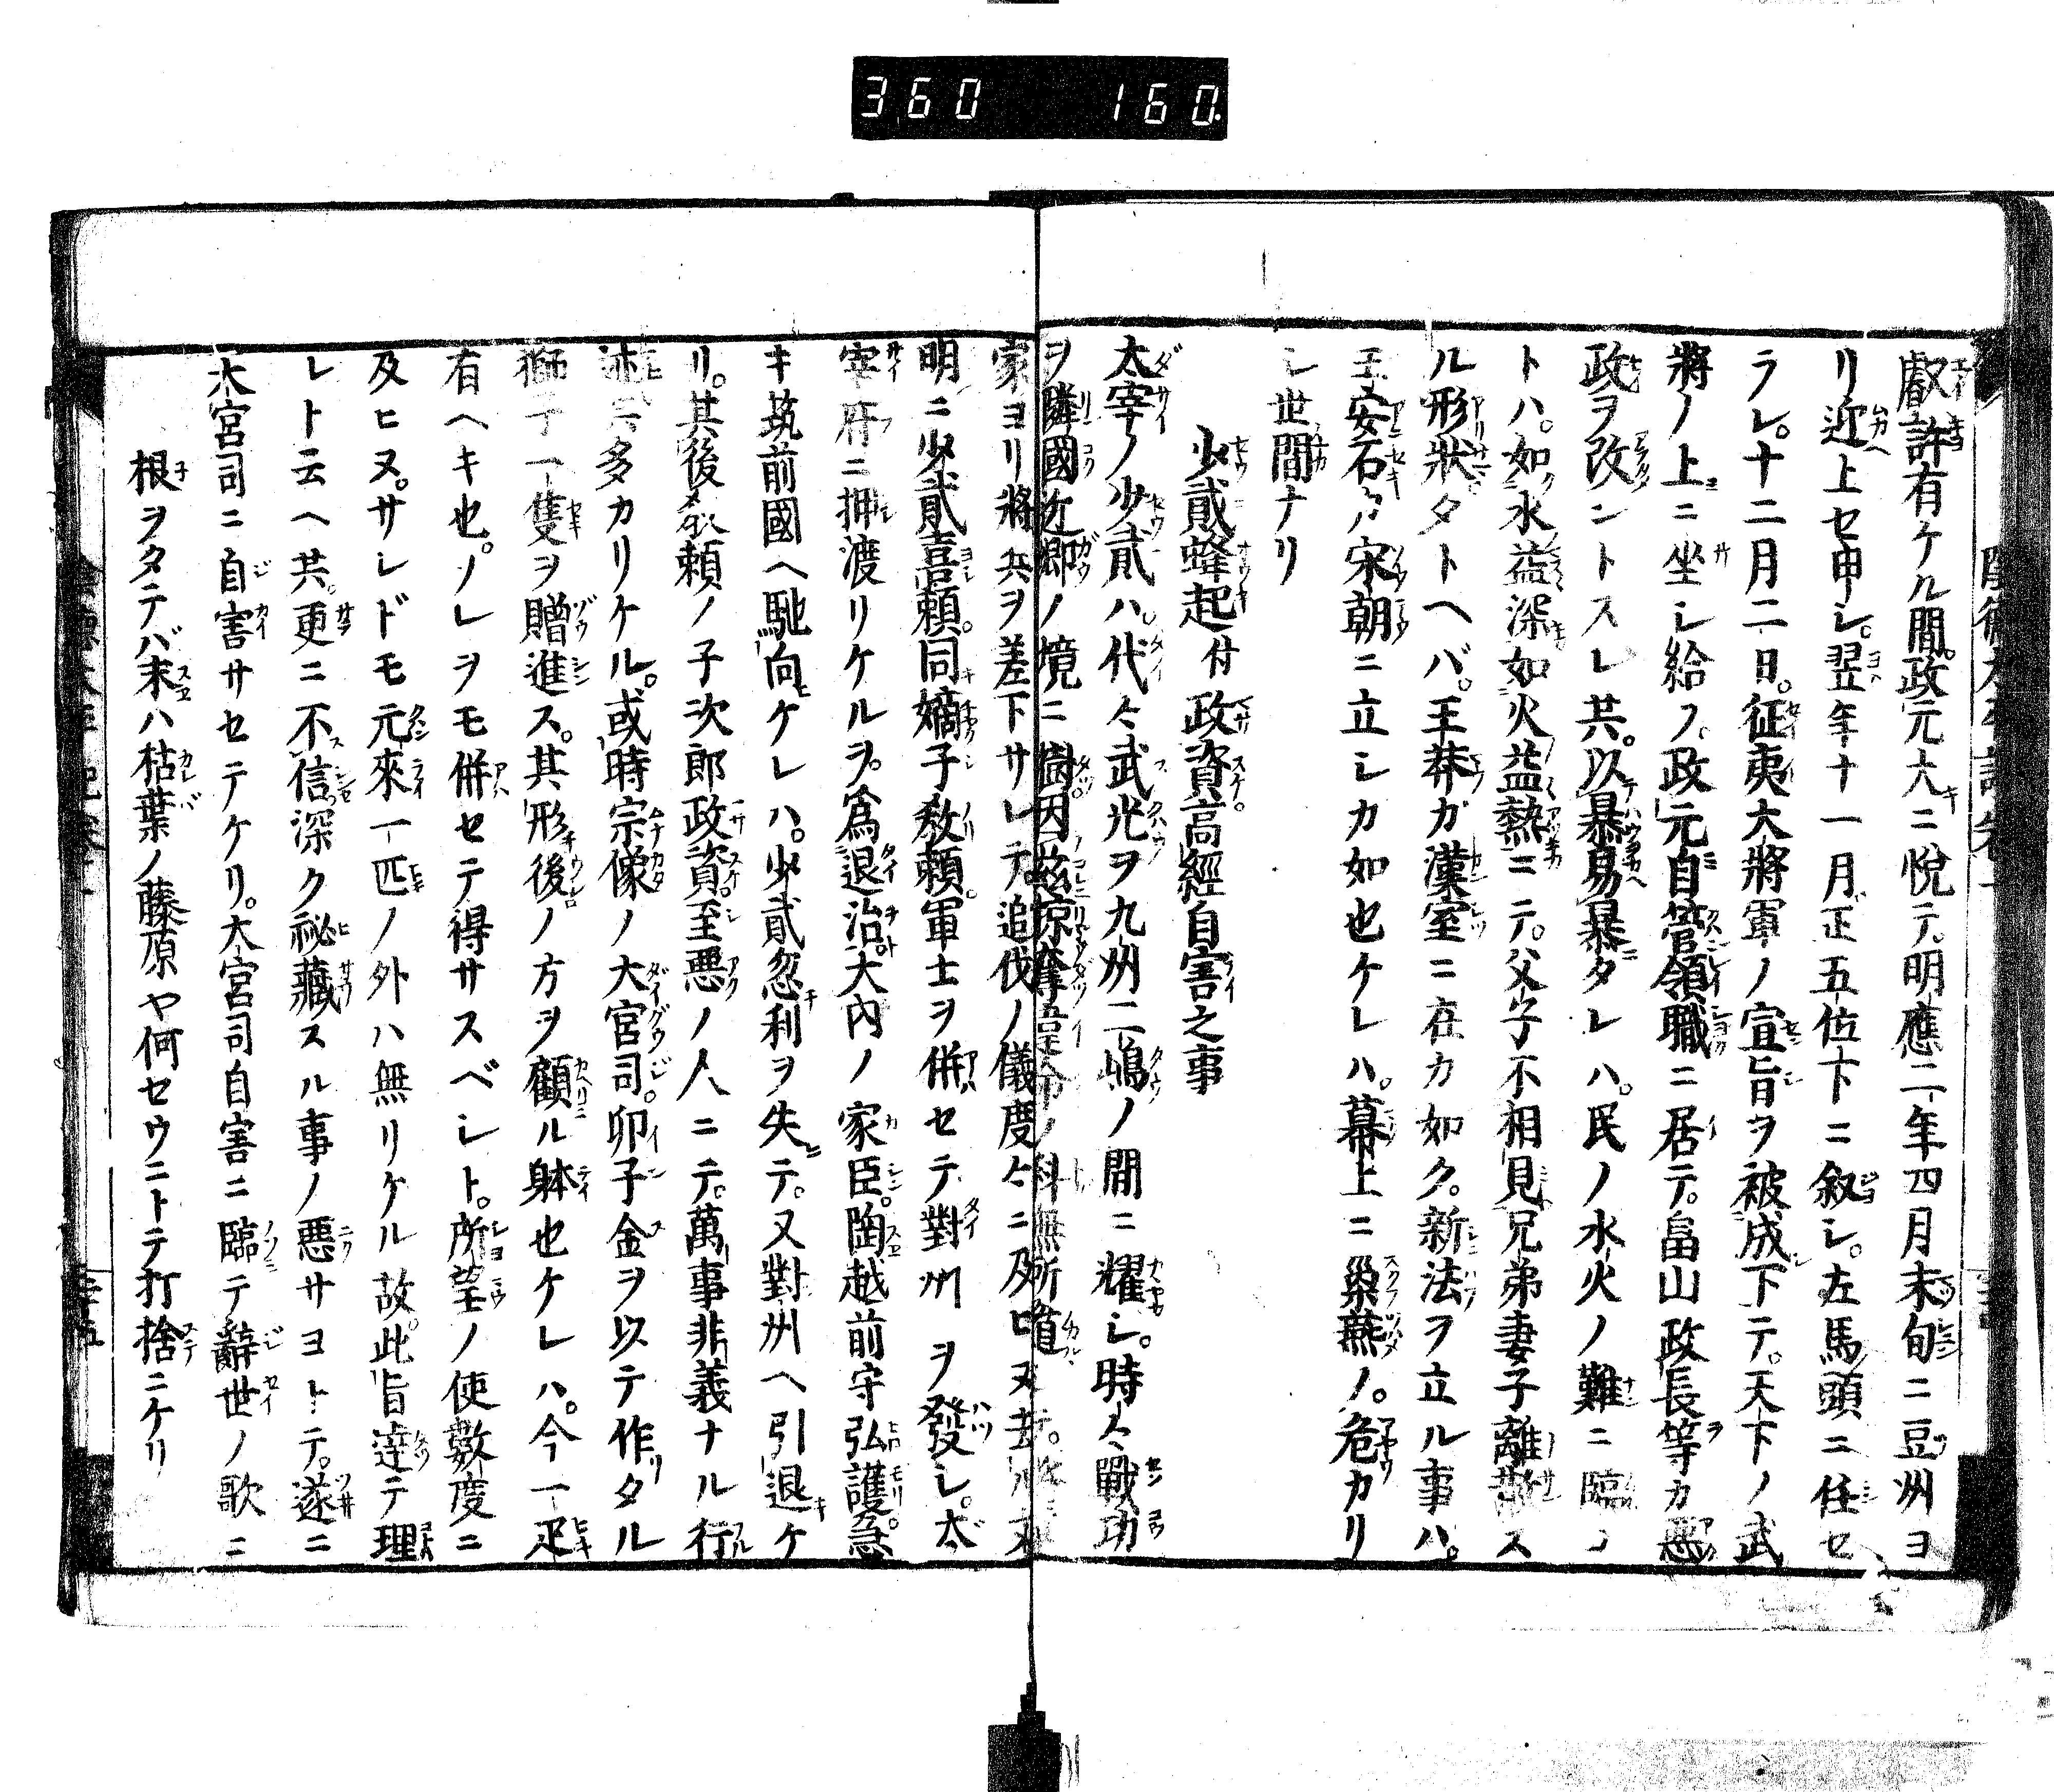 360 160.
叡許有ケル間。政元大ニ悦テ。明應二年四月末旬ニ豆州ヨ
リ近上セ申シ。翌年十一月正五位下ニ叙シ。左馬頭ニ任セ
ラレ。十二月二日。征夷大將軍ノ宣旨ヲ被成下テ。天下ノ武
將ノ上ニ坐シ給フ。政元自管領職ニ居テ。畠山政長等カ惡
政ヲ改ントスレ共。以暴易暴タレハ。民ノ水火ノ難ニ臨
トハ。如水益深如火益熱ニテ。父子不相見兄弟妻子離散ス
ル形狀タトヘバ。王莽ガ漢室ニ在カ如ク。新法ヲ立ル事ハ。
王安石カ宋朝ニ立シカ如也ケレハ。幕上ニ巢燕ノ。危カリ
シ世間ナリ
少貳蜂起付政資高經自害之事
太宰ノ少貳ハ代々武光ヲ九州二嶋ノ間ニ耀シ。時々戰功
ヲ隣國近郷ノ境ニ樹。因茲掠奪皇命ノ科無所遁
家ヨリ將兵ヲ差下サレテ。追伐ノ儀度々ニ及ヒヌ
明ニ少貳喜頼。同嫡子敎頼。軍士ヲ併セテ對州ヲ發シ。太
宰府ニ押渡リケルヲ。爲退治。大内ノ家臣。陶越前守弘護。急
キ筑前國ヘ馳向ケレハ。少貳忽利ヲ失テ。又對州ヘ引退ケ
リ。其後敎頼ノ子次郎政資。至惡ノ人ニテ。萬事非義ナル行
迹多カリケル。或時宗像ノ大宮司。卯子金ヲ以テ作タル
獅子一隻ヲ贈進ス。其形後ノ方ヲ顧ル躰也ケレハ。今一疋
有ヘキ也。ノレヲモ併セテ得サスベシト。所望ノ使數度ニ
及ヒヌ。サレドモ元來一匹ノ外ハ無リケル故。此旨達テ理
レト云ヘ共。更ニ不信深ク祕藏スル事ノ惡サヨトテ。遂ニ
大宮司ニ自害サセテケリ。大宮司自害ニ臨テ辭世ノ歌ニ
根ヲタテバ末ハ枯葉ノ藤原ヤ何セウニトテ打捨ニケリ